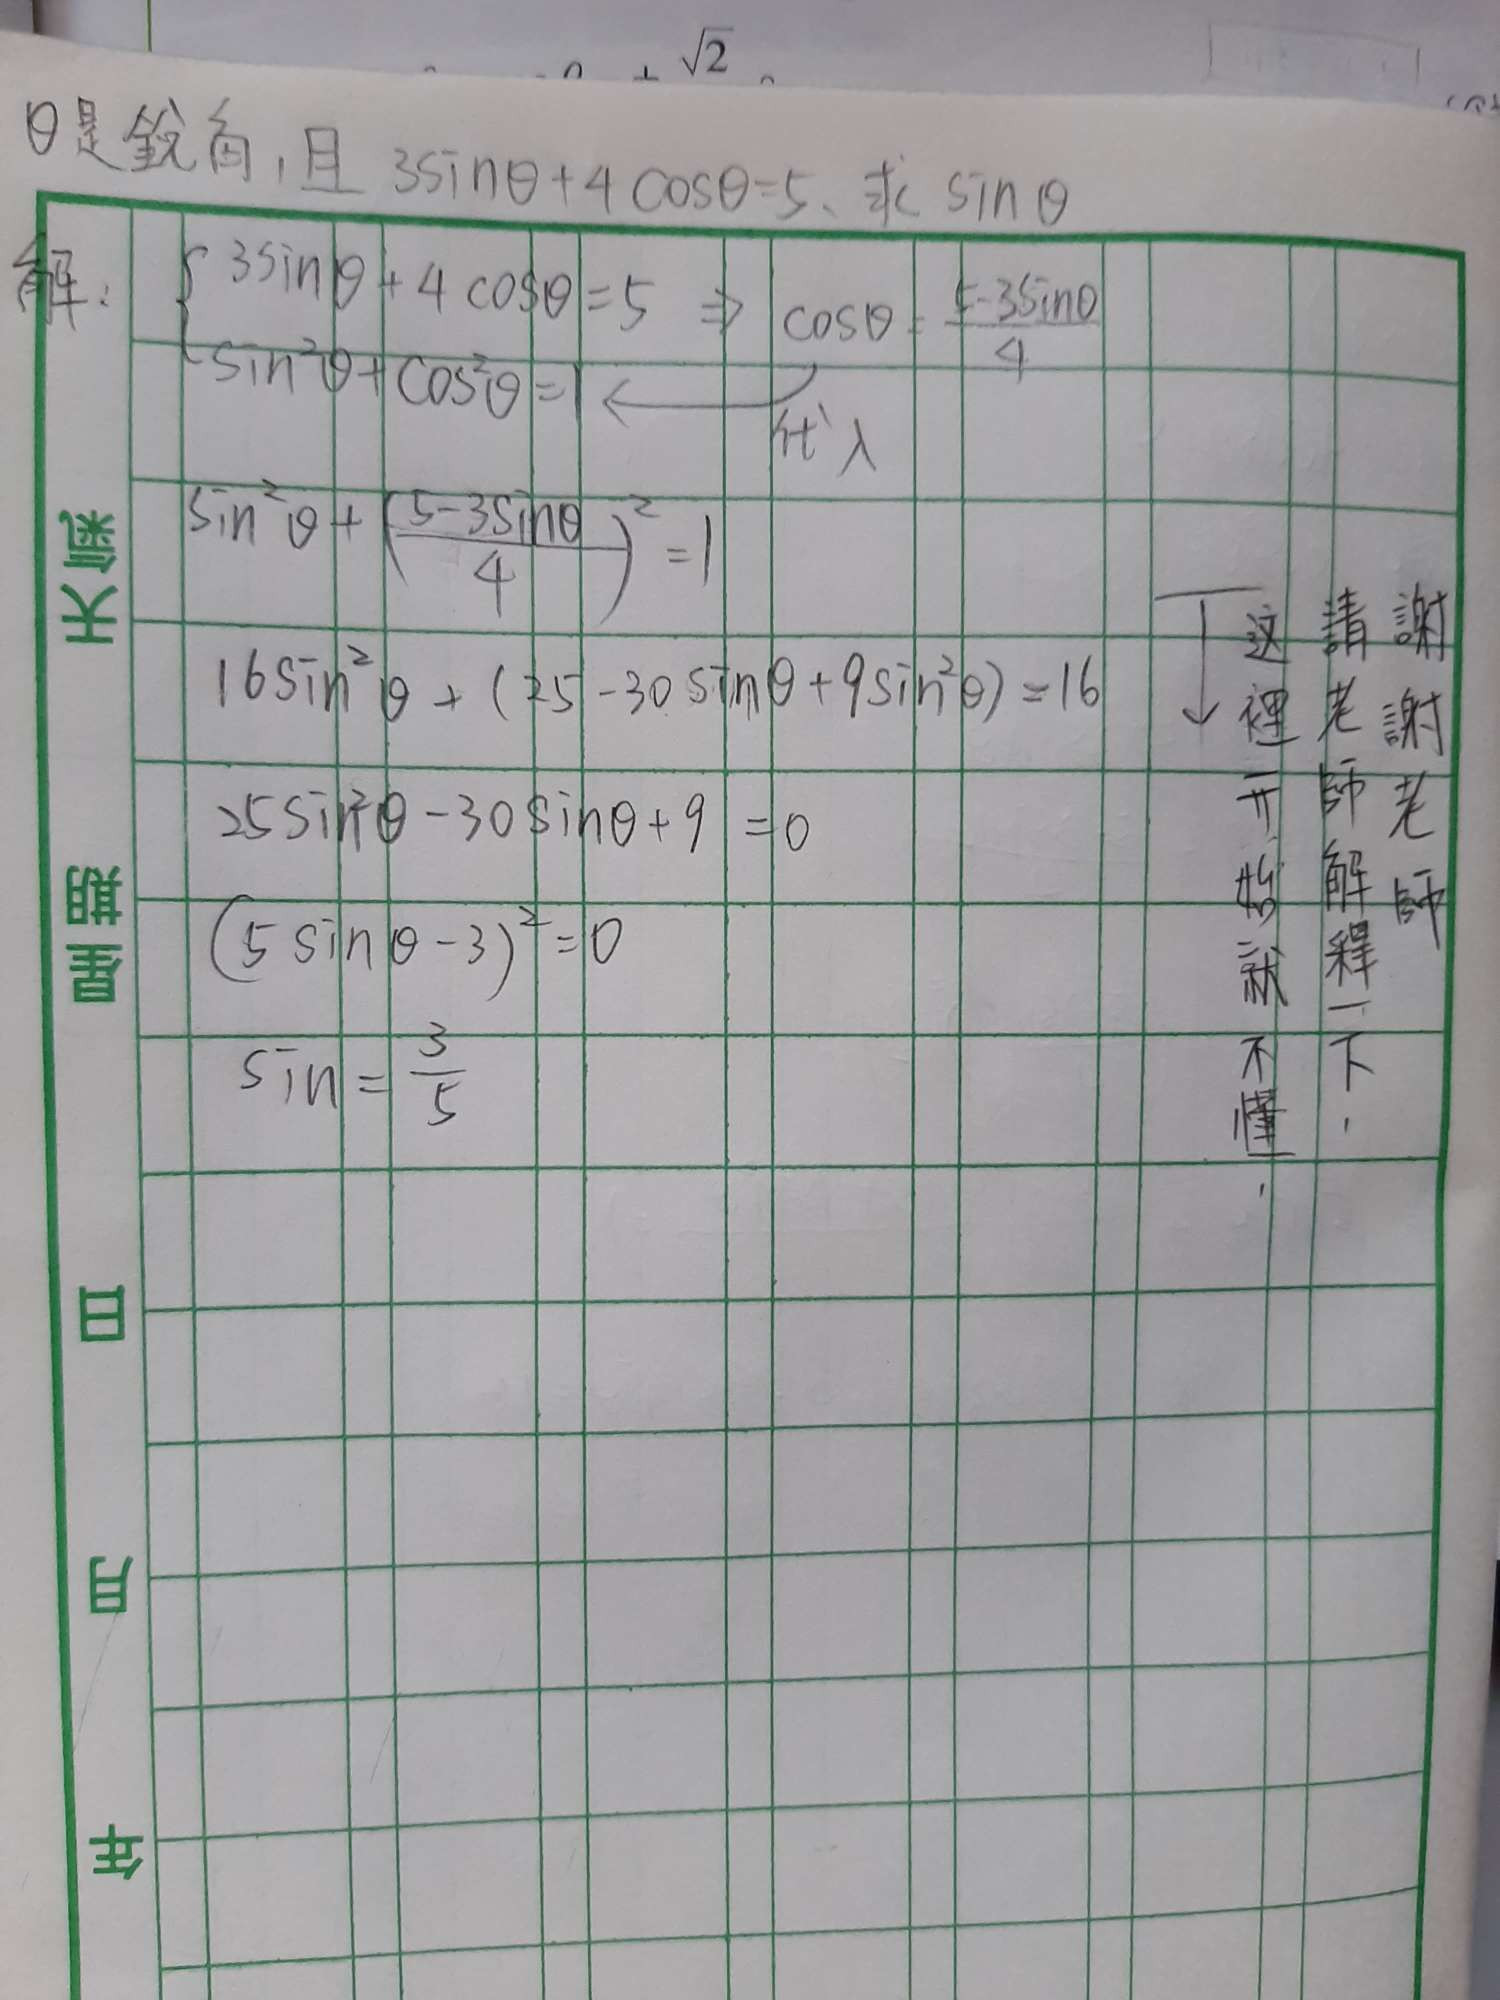 √2
θ是銳角,且 3sinθ+4cosθ=5、求 sinθ
解: { 3sinθ+4cosθ=5 ⇒ cosθ = (5-3sinθ)/4
sin²θ+cos²θ=1 ← 代入
sin²θ+((5-3sinθ)/4)²=1
16sin²θ+(25-30sinθ+9sin²θ)=16
25sin²θ-30sinθ+9=0
(5sinθ-3)²=0
sin=3/5
这裡开始就不懂.
請老師解釋一下.
謝謝老師
年 月 日 星期 天氣